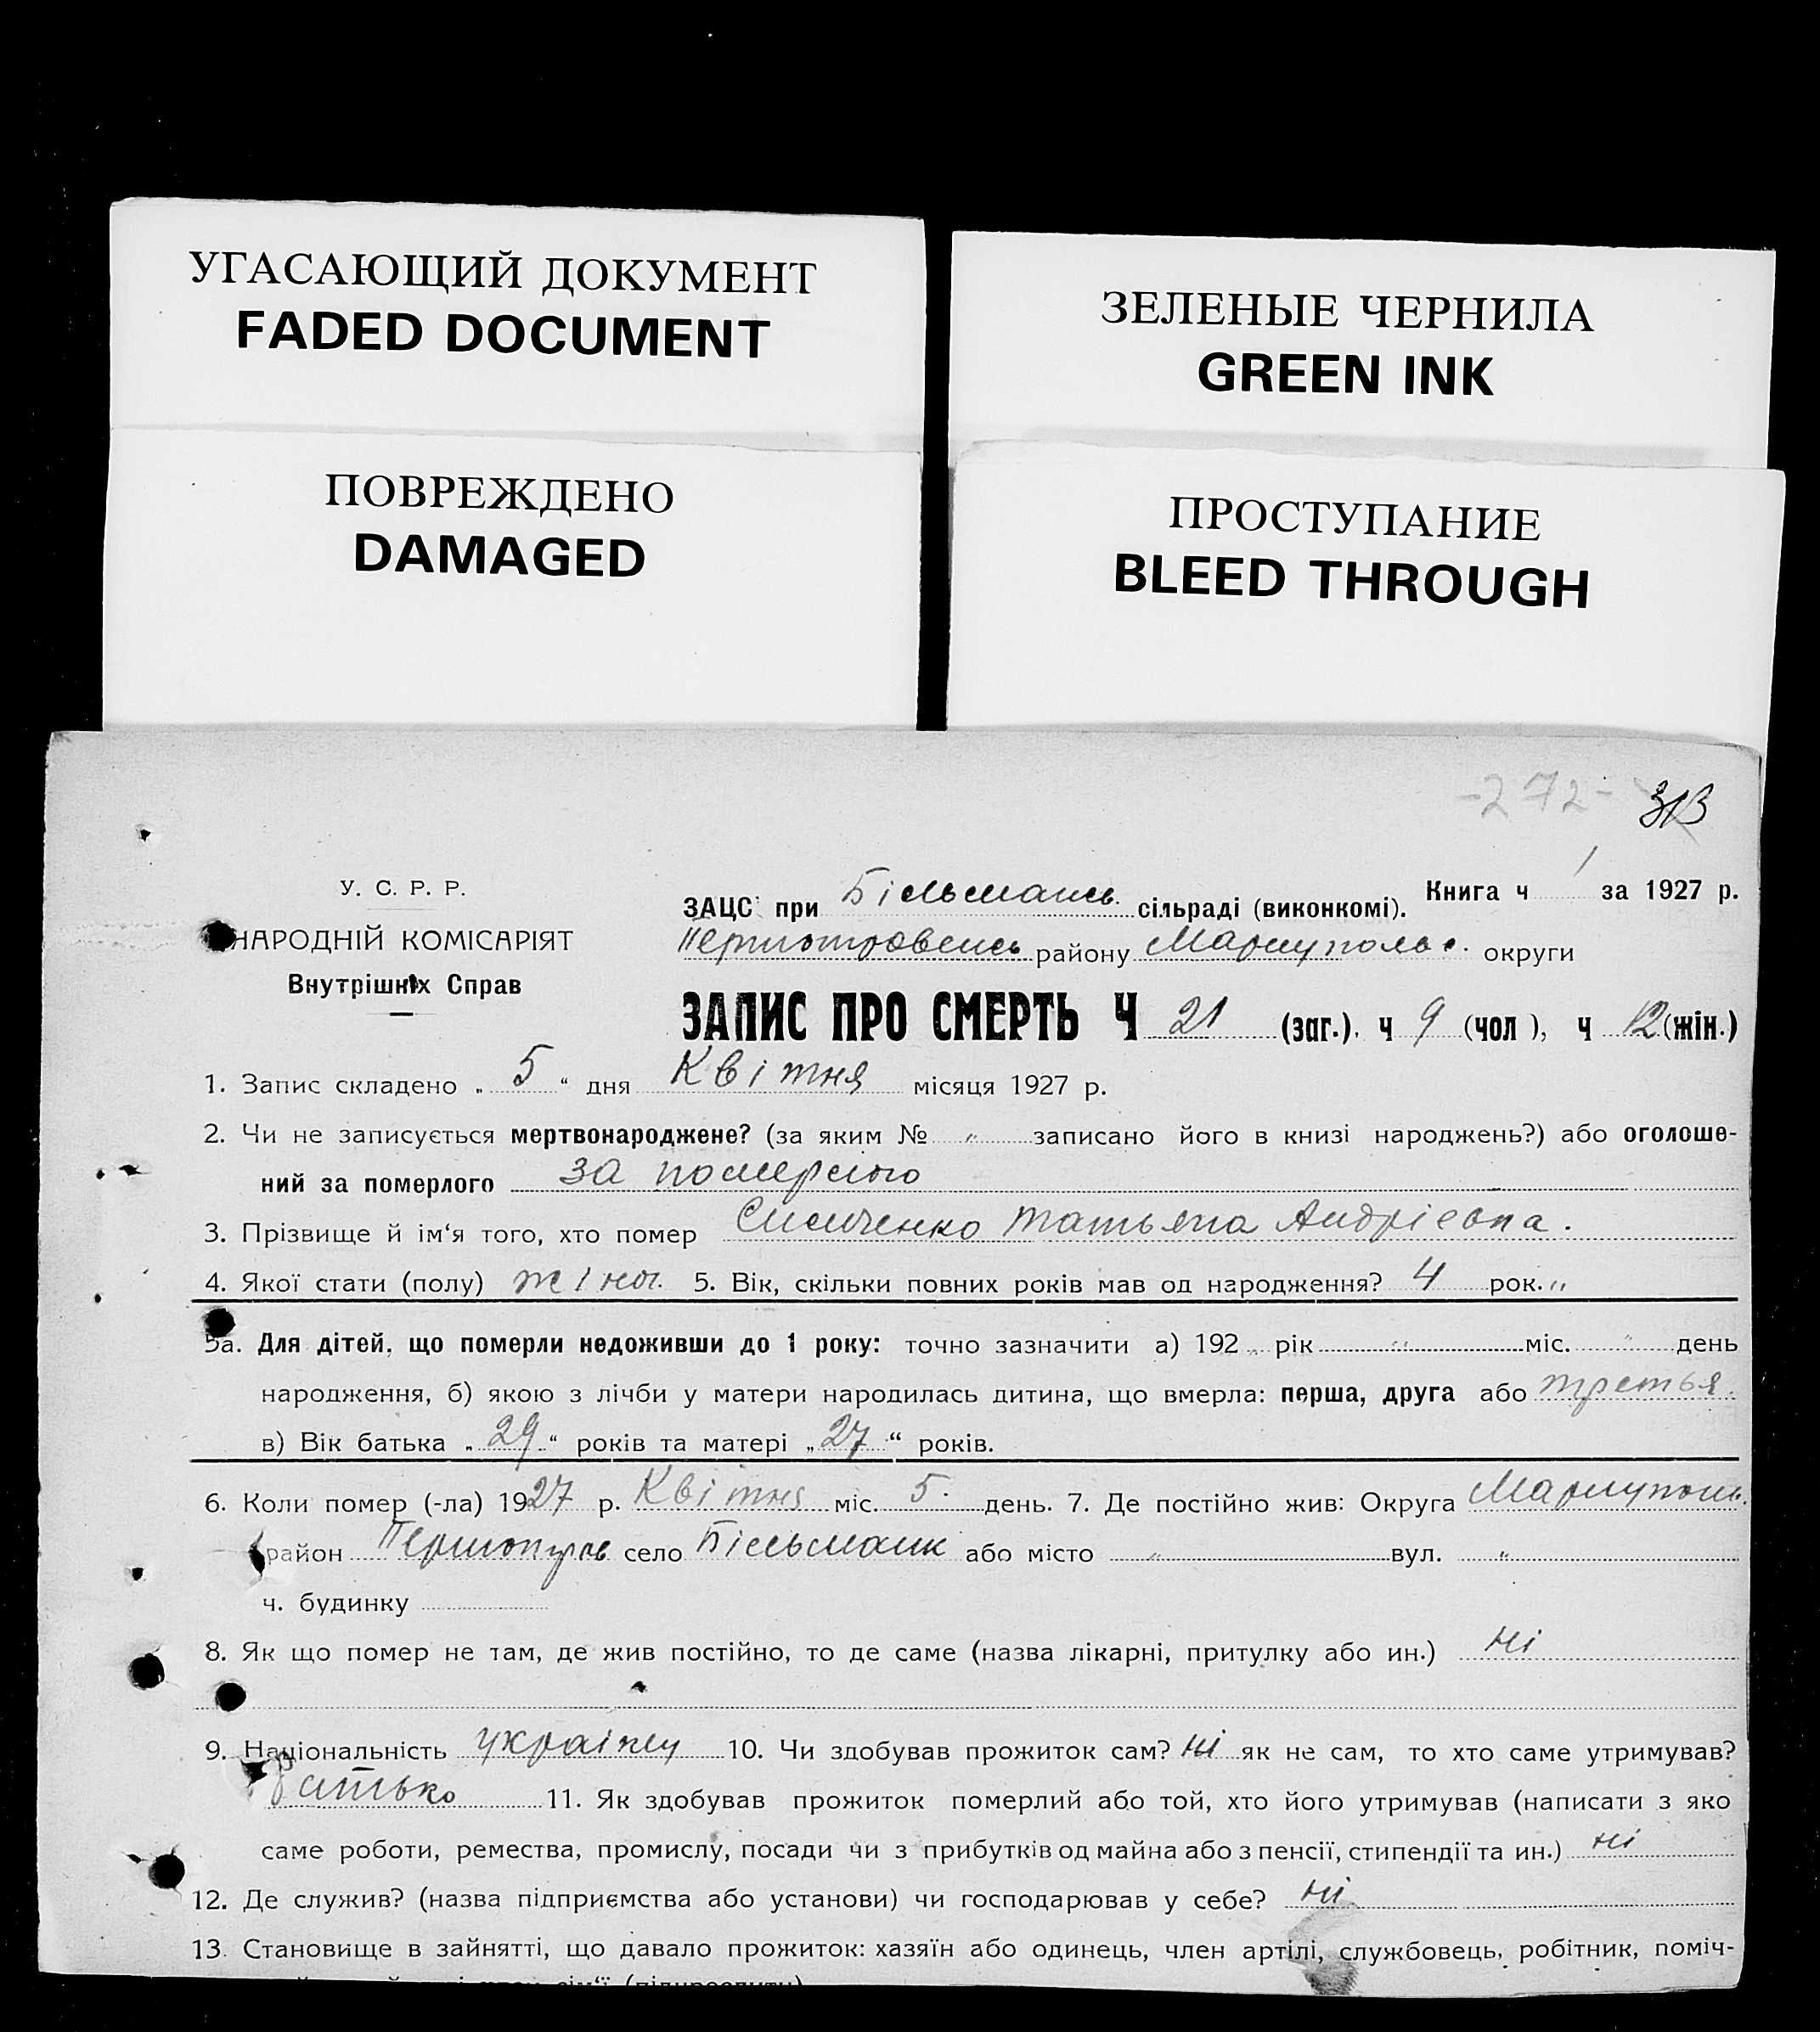 УГАСАЮЩИЙ ДОКУМЕНТ
FADED DOCUMENT
ЗЕЛЕНЫЕ ЧЕРНИЛА
GREEN INK
ПОВРЕЖДЕНО
DAMAGED
ПРОСТУПАНИЕ
BLEED THROUGH
-272- 313
У. С. Р. Р.
НАРОДНІЙ КОМІСАРІЯТ
Внутрішніх Справ
Книга ч 1 за 1927 р.
ЗАЦС при Більмансь. сільраді (виконкомі).
Першотравенсь району Маріупольс. округи
ЗАПИС ПРО СМЕРТЬ Ч 21 (заг.). ч 9 (чол), ч 12 (жін.)
1. Запис складено „ 5 “ дня Квітня місяця 1927 р.
2. Чи не записується мертвонароджене? (за яким № „ записано його в книзі народжень?) або оголоше-
ний за померлого за померлого
3. Прізвище й ім‘я того, хто помер Татьяна Андрієвна.
4. Якої стати (полу) жіноч. 5. Вік, скільки повних років мав од народження? 4 рок. „
5а. Для дітей, що померли недоживши до 1 року: точно зазначити а) 192 „ рік „ міс. „ день
народження, б) якою з лічби у матери народилась дитина, що вмерла: перша, друга або третья.
в) Вік батька „ 29 “ років та матері „ 27 “ років.
6. Коли помер (-ла) 1927 р. Квітня міс. 5. день. 7. Де постійно жив: Округа Маріуполь.
район Першотрав село Більманк або місто „ вул. „
ч. будинку
8. Як що помер не там, де жив постійно, то де саме (назва лікарні, притулку або ин.) Ні
9. Національність україну 10. Чи здобував прожиток сам? Ні як не сам, то хто саме утримував?
батько 11. Як здобував прожиток померлий або той, хто його утримував (написати з яко
саме роботи, ремества, промислу, посади чи з прибутків од майна або з пенсії, стипендії та ин.) Ні
12. Де служив? (назва підприємства або установи) чи господарював у себе? Ні
13. Становище в зайнятті, що давало прожиток: хазяїн або одинець, член артілі, службовець, робітник, поміч-